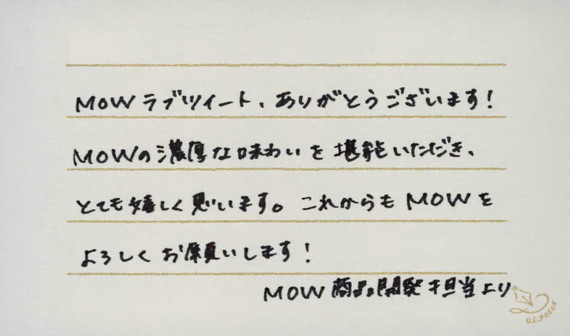 MOWラブツイート、ありがとうございます!
MOWの濃厚な味わいを堪能いただき、
とても嬉しく思います。これからもMOWを
よろしくお願いします!
MOW 商品開発担当より